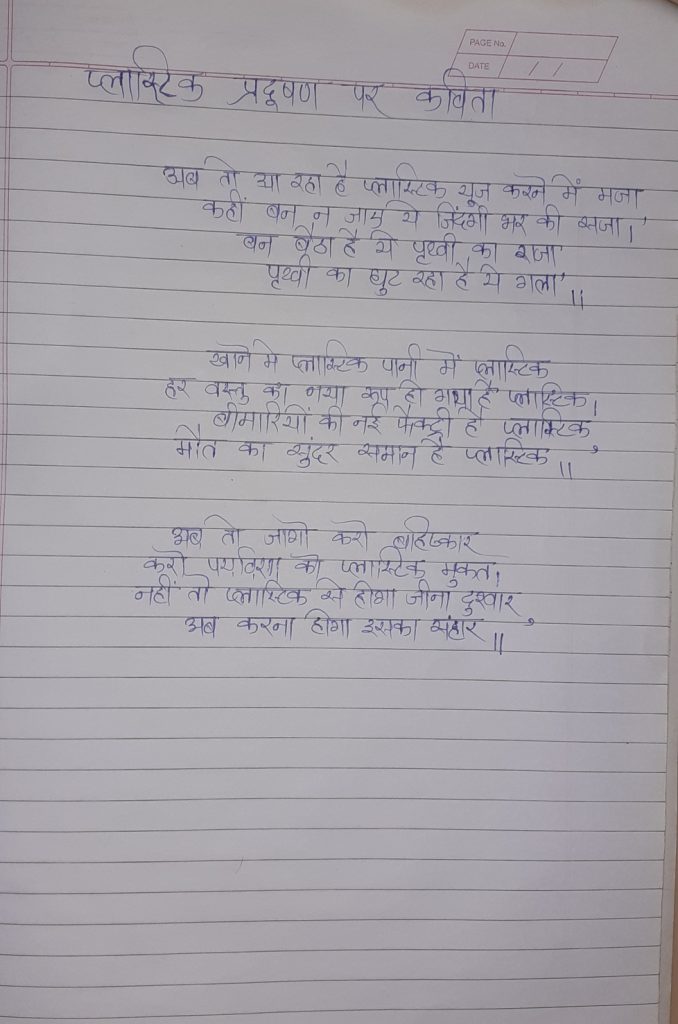 PAGE No.
DATE / /
प्लास्टिक प्रदूषण पर कविता
अब तो आ रहा है प्लास्टिक यूज करने में मजा
कहीं बन न जाए ये जिंदगी भर की सजा।
बन बैठा है ये पृथ्वी का राजा
पृथ्वी का घुट रहा है ये गला ॥
खाने मे प्लास्टिक पानी में प्लास्टिक
हर वस्तु का नया रूप हो गया है प्लास्टिक।
बीमारियों की नई फैक्ट्री है प्लास्टिक,
मौत का सुंदर समान है प्लास्टिक ॥
अब तो जागो करो बहिष्कार
करो पर्यावरण को प्लास्टिक मुक्त।
नहीं तो प्लास्टिक से होगा जीना दुश्वार,
अब करना होगा इसका संहार ॥